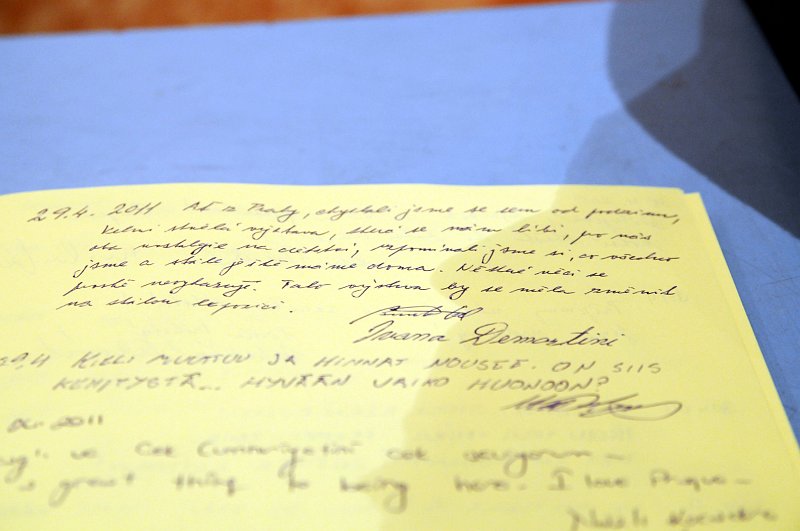 29.4. 2011 Ač iz Prahy, chystali jsme se sem od podzimu,
velmi stručná výstava, která se nám líbí, pro nás
oba nostalgie na dětství, vzpomínali jsme si, co všechno
jsme a stále ještě máme doma. Některé věci se
prostě nevyhazují. Tato výstava by se měla změnit
na stálou expozici.
Ivana Demartini
29.4 KIELI MUUTTUU JA HINNAT NOUSEE. ON SIIS
KEHITYSTÄ... HYVÄÄN VAIKO HUONOON?
2011
Cek Cumhuriyetini cok
great thing to being here. I love Prague